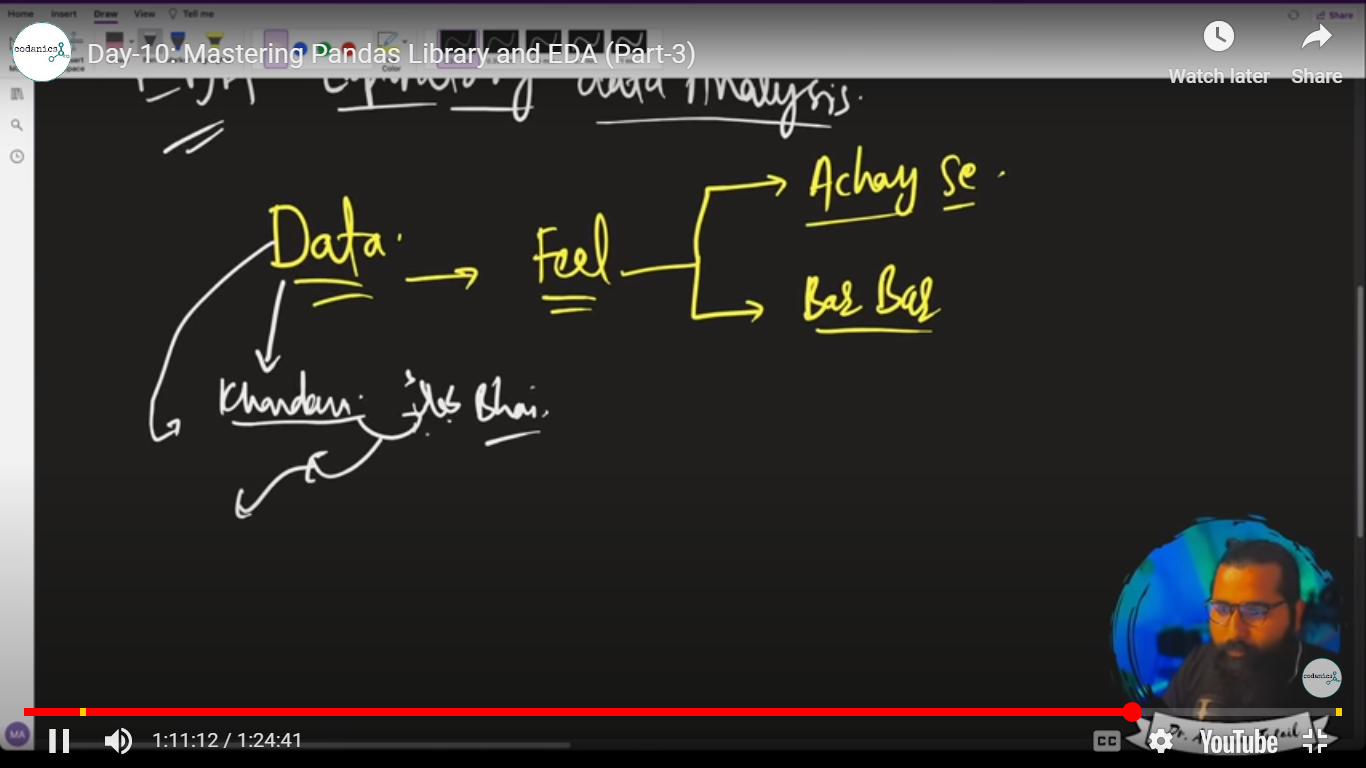 Home Insert Draw View Tell me
Share
codanics
Day-10: Mastering Pandas Library and EDA (Part-3)
Color
Watch later Share
EDA Exploratory data Analysis.
Achay Se.
Data.
Feel
Bar Bar
Khandan. Bhai.
codanics
MA
1:11:12 / 1:24:41
CC
YouTube
Dr.